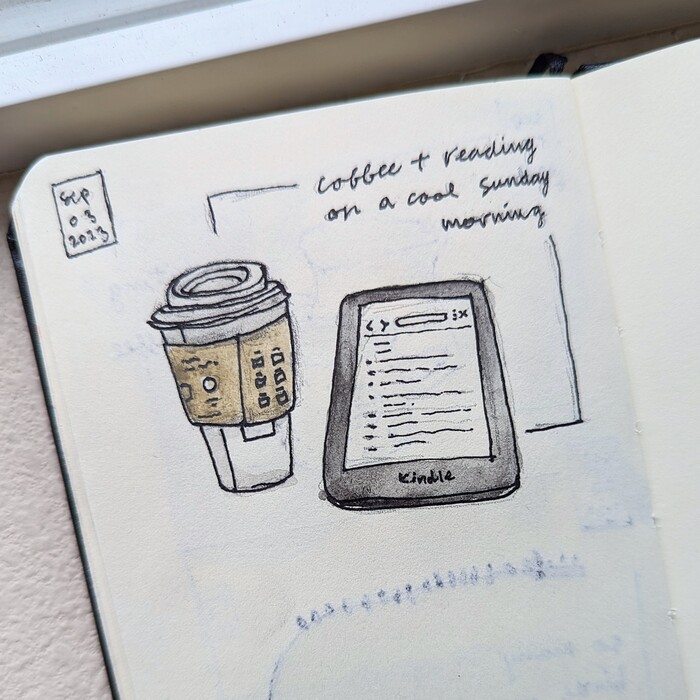 Sep
03
2023
coffee + reading
on a cool Sunday
morning
Kindle